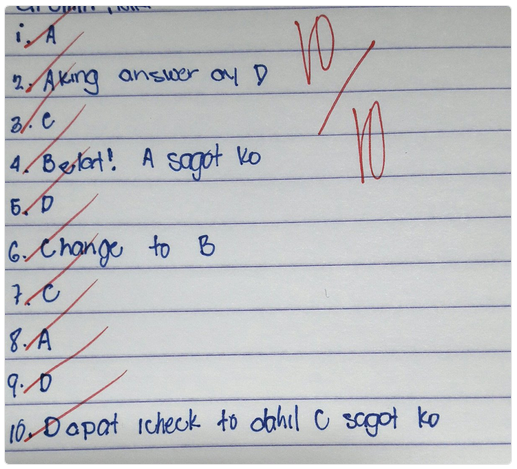 1. A
2. Aking answer ay D
3. C
4. Belat! A sagot ko
5. D
6. Change to B
7. C
8. A
9. D
10. Dapat icheck to dahil C sagot ko
10/10